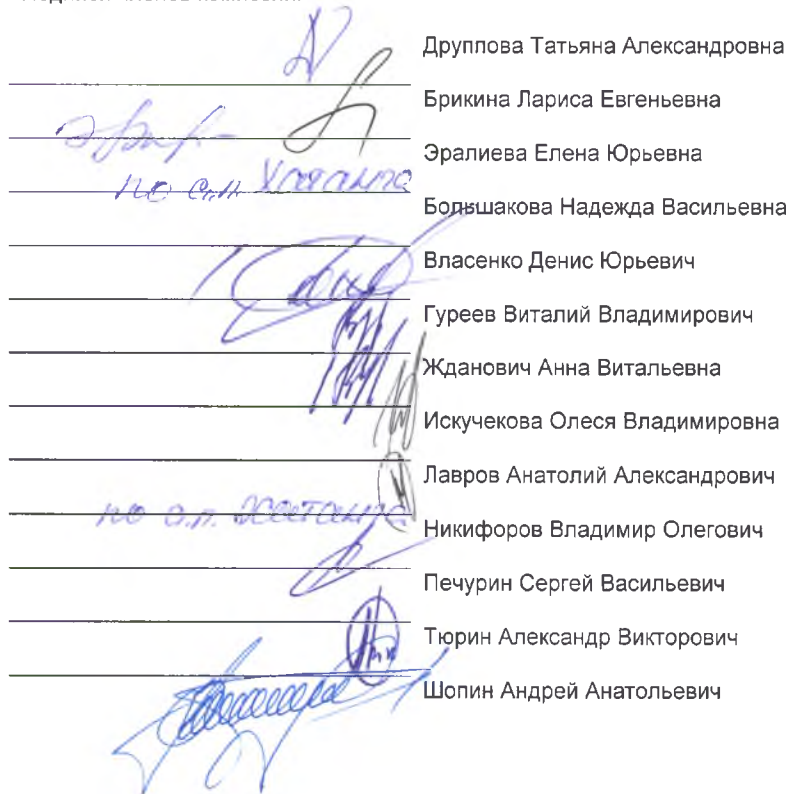 Друппова Татьяна Александровна
Брикина Лариса Евгеньевна
Эралиева Елена Юрьевна
по с.п. Хатанга
Большакова Надежда Васильевна
Власенко Денис Юрьевич
Гуреев Виталий Владимирович
Жданович Анна Витальевна
Искучекова Олеся Владимировна
Лавров Анатолий Александрович
по с.п. Хатанга
Никифоров Владимир Олегович
Печурин Сергей Васильевич
Тюрин Александр Викторович
Шопин Андрей Анатольевич